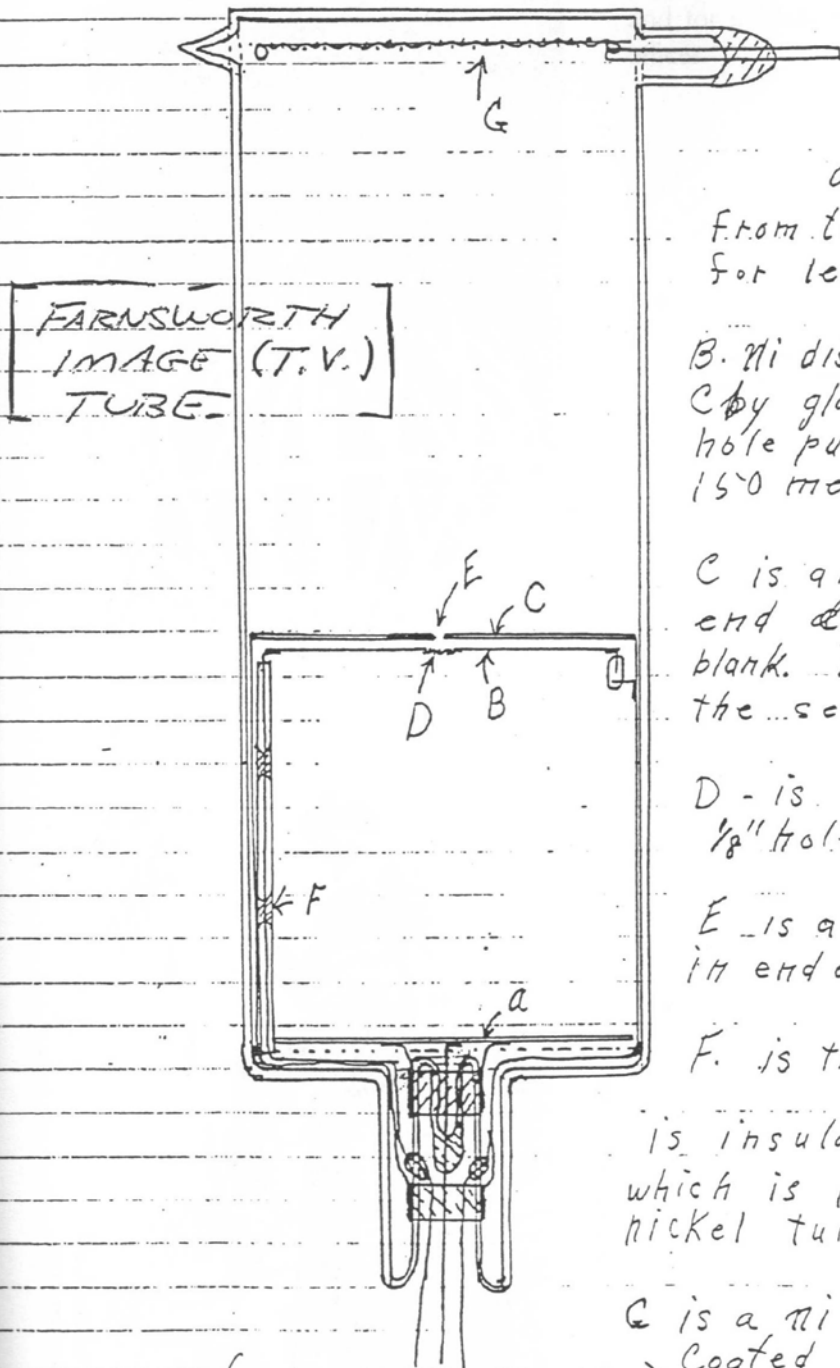 G
[FARNSWORTH
IMAGE (T.V.)
TUBE]
From t
for le
B. Ni dis
C by gl
hole pu
150 me
E
C
C is a
end
blank.
the se
D
B
D - is
1/8" hol
F
E is a
in end
a
F. is t
is insul
which is
nickel tu
G is a Ni
Coated